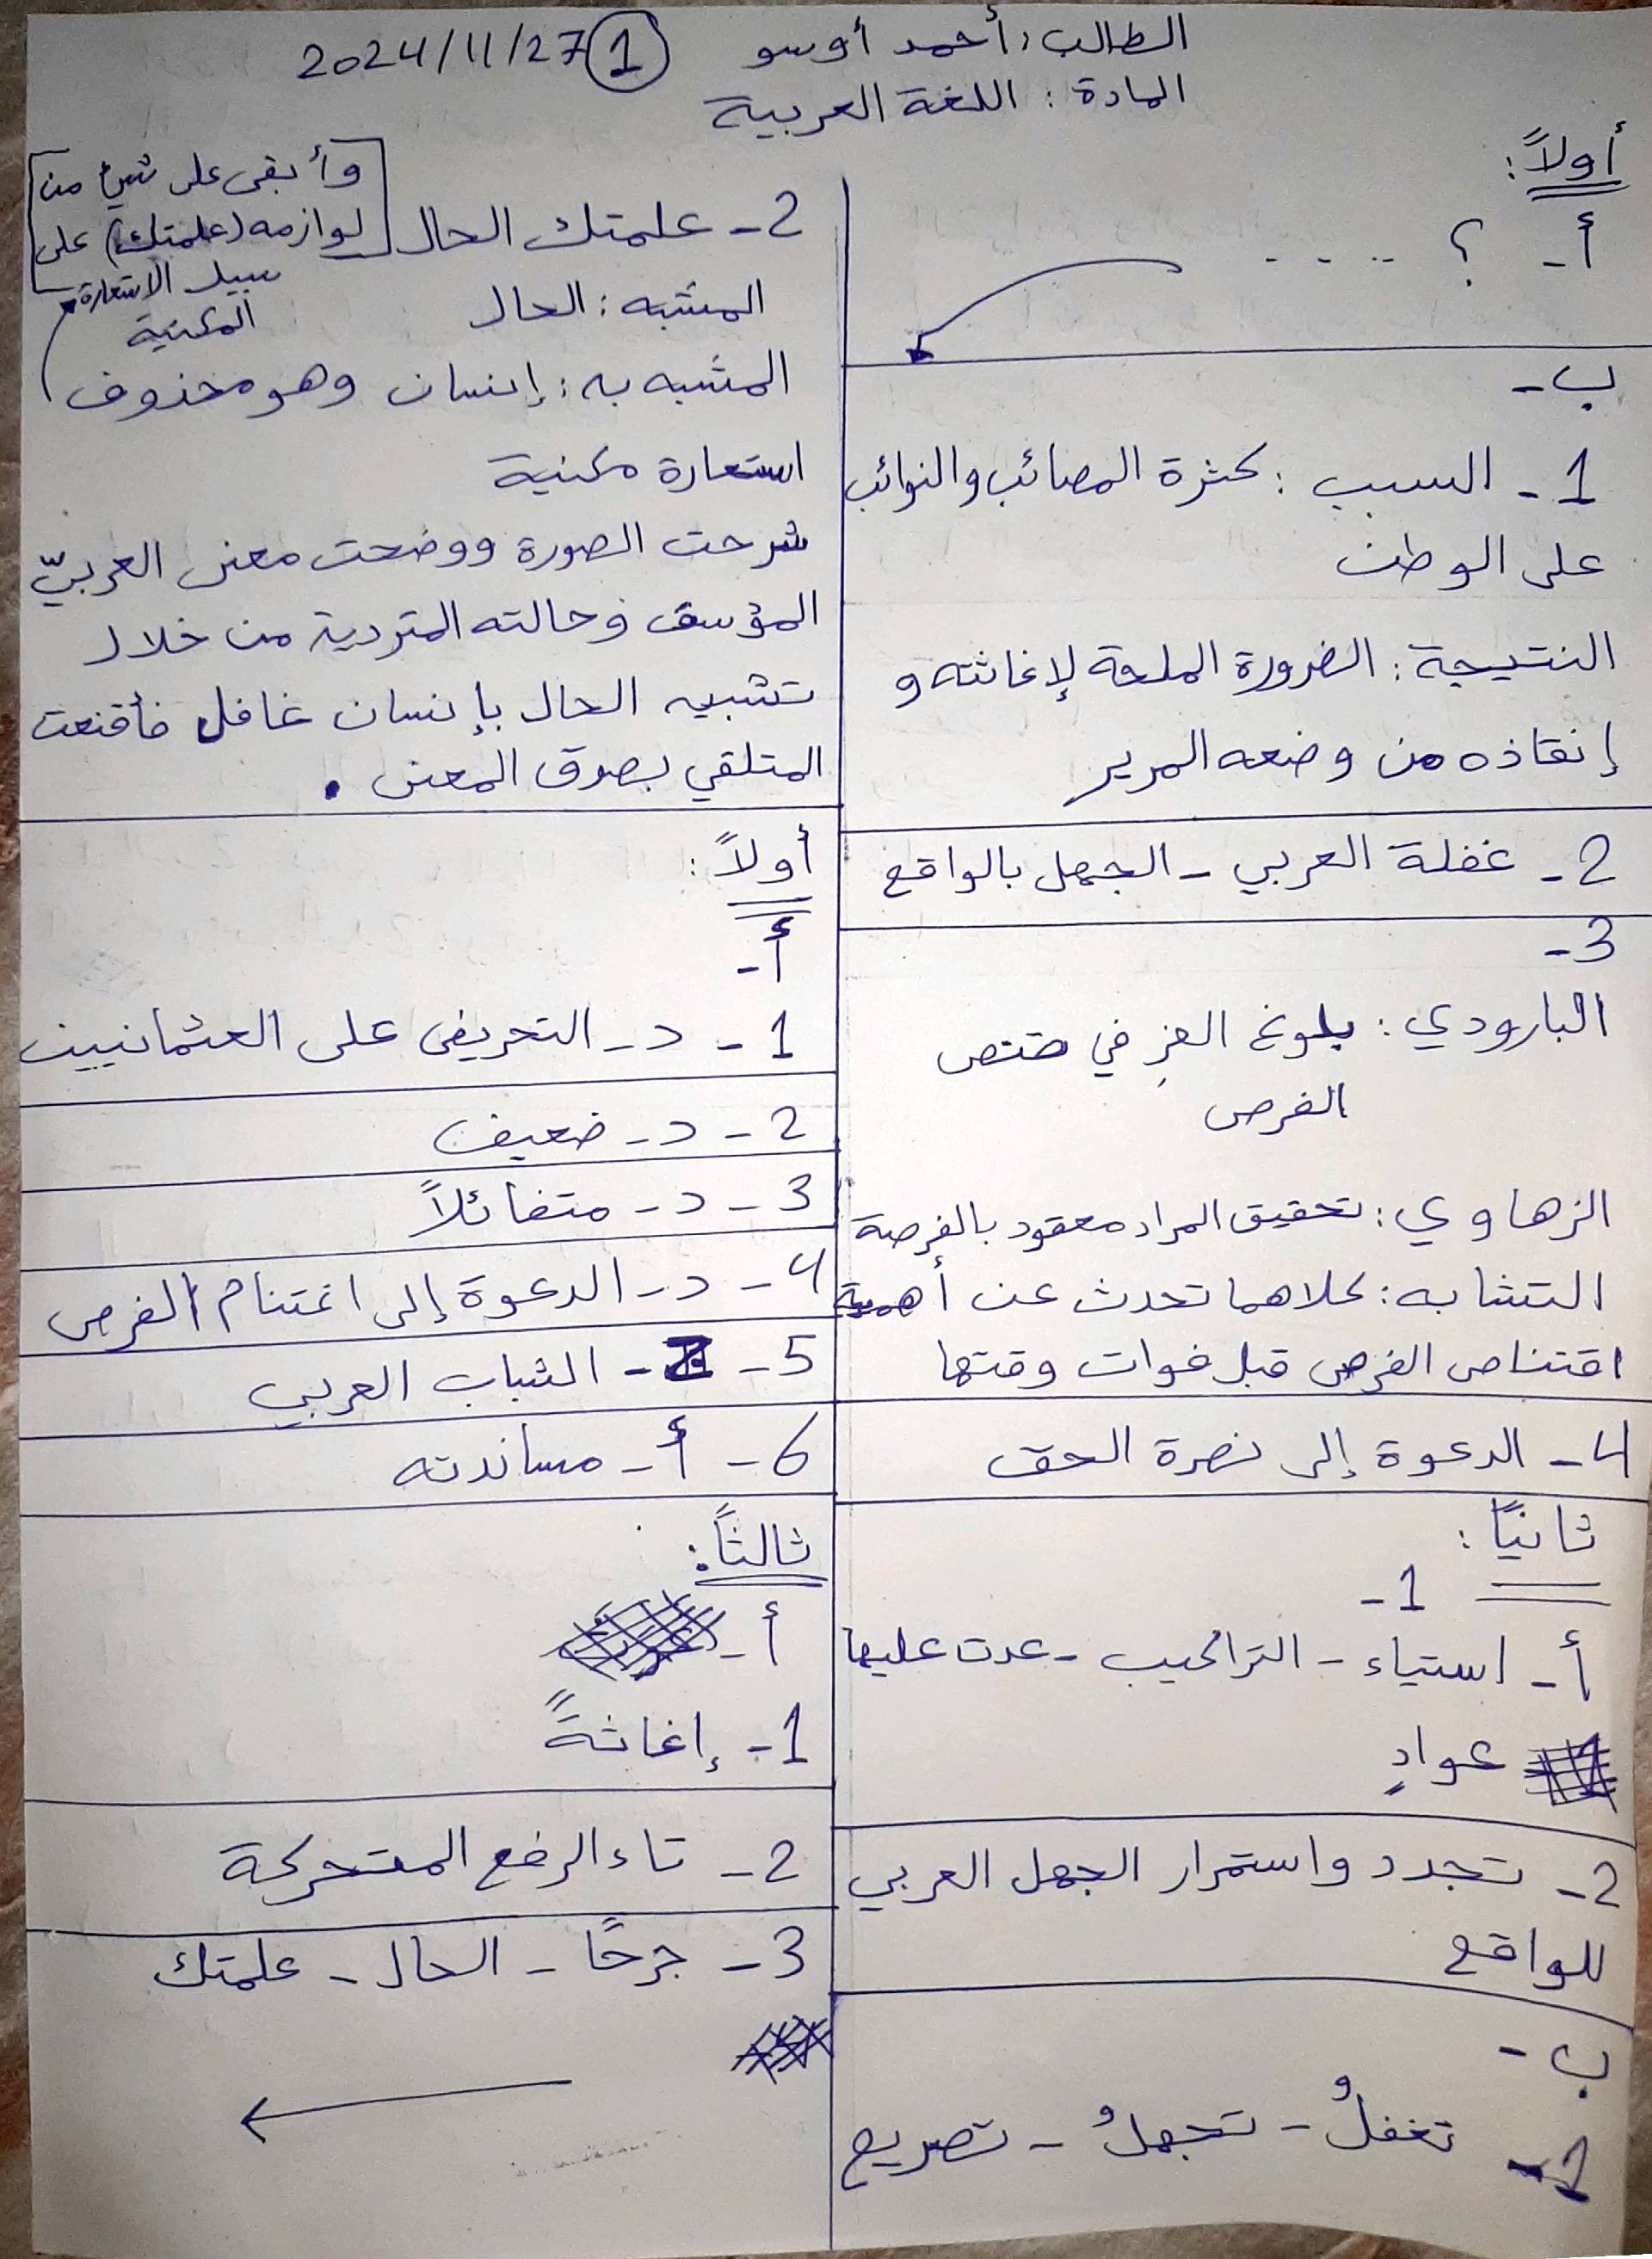 الطالب: أحمد أوسو
1
2024/11/27
المادة: اللغة العربية
أولاً:
أ- ؟ ....
ب-
1- السبب: كثرة المصائب والنوائب
على الوطن
النتيجة: الضرورة الملحة لإغاثته و
إنقاذه من وضعه المرير
2- غفلة العربي - الجهل بالواقع
3-
البارودي: بلوغ العز في
الفرص
الزهاوي: تحقيق المراد معقود بالفرصة
التشابه: كلاهما تحدث عن أهمية
اقتناص الفرص قبل فوات وقتها
4- الدعوة إلى نصرة الحق
ثانيًا:
1-
أ- استياء - التراكيب - عدت عليها
عوادٍ
2- تجدد واستمرار الجهل العربي
للواقع
ب-
1- تغفلُ - تجهلُ - تصريع
2- علمتك الحال
وأبقى على شيء من
لوازمه (علمتك) على
سبيل الاستعارة
المكنية
المشبه: الحال
المشبه به: إنسان وهو محذوف
استعارة مكنية
شرحت الصورة ووضحت معنى العربيّ
المؤسف وحالته المتردية من خلال
تشبيه الحال بإنسان غافل فأقنعت
المتلقي بصدق المعنى .
أولاً:
أ-
1- د- التحريض على العثمانيين
2- د- ضعيف
3- د- متفائلاً
4- د- الدعوة إلى اغتنام الفرص
5- - الشباب العربي
6- أ- مساندته
ثالثاً:
أ-
1- إغاثةً
2- تاء الرفع المتحركة
3- جرحًا - الحال - علمتك